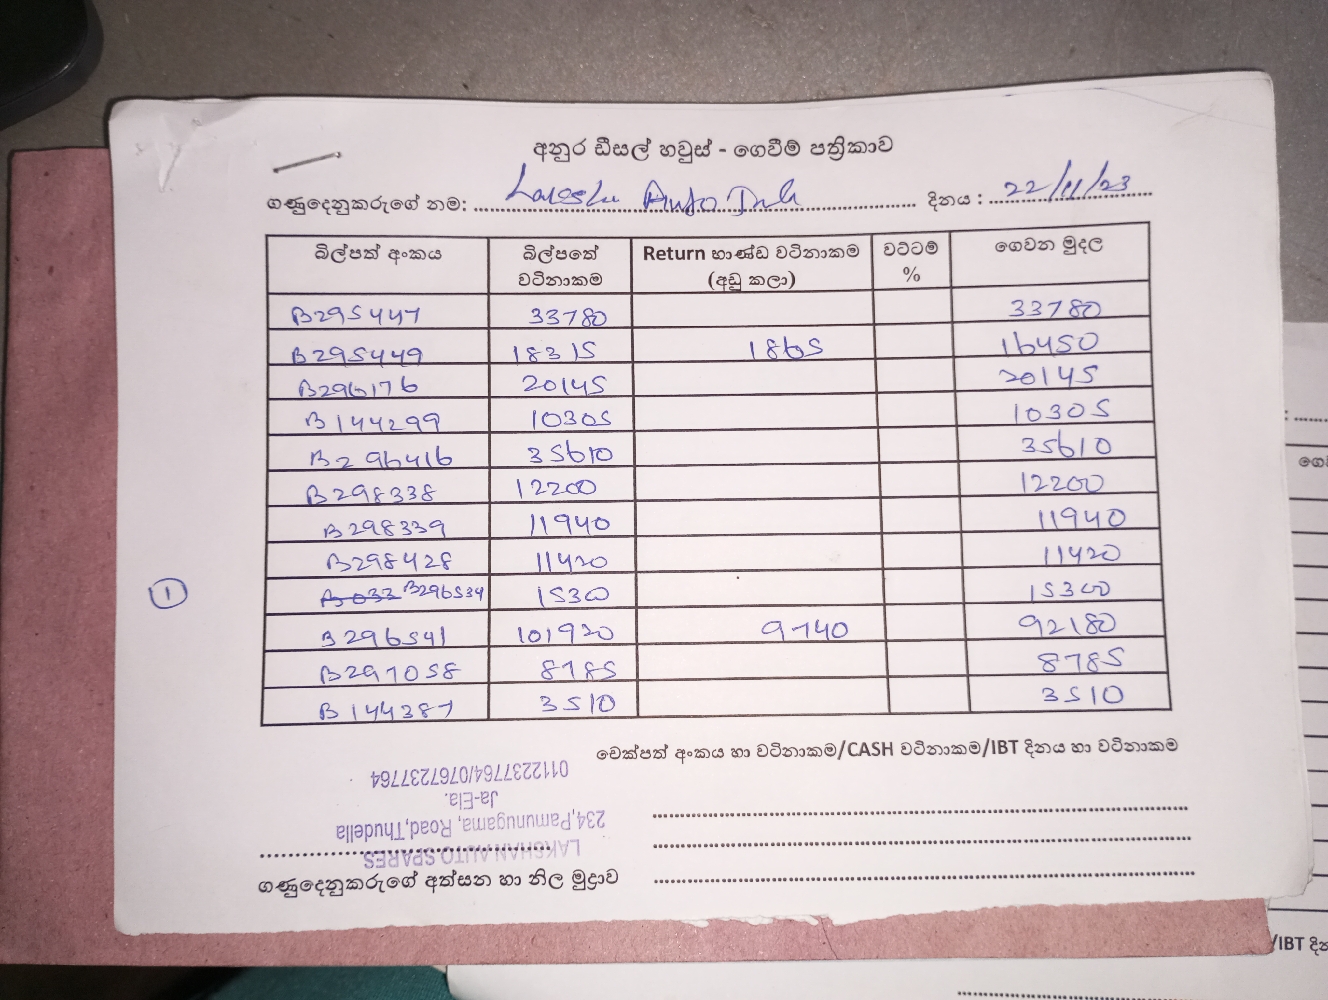 අනුර ඩීසල් හවුස් - ගෙවීම් පත්‍රිකාව
ගණුදෙනුකරුගේ නම: Auto දිනය : 22/11/23
බිල්පත් අංකය බිල්පතේ වටිනාකම Return භාණ්ඩ වටිනාකම (අඩු කලා) වට්ටම් % ගෙවන මුදල
B295447 33780 33780
B295449 18315 1865 16450
B296176 20145 20145
B144299 10305 10305
B296416 35610 35610
B298338 12200 12200
B298339 11940 11940
B298428 11420 11420
① B296534 15300 15300
B296541 101920 9740 92180
B297058 8785 8785
B144387 3510 3510
චෙක්පත් අංකය හා වටිනාකම/CASH වටිනාකම/IBT දිනය හා වටිනාකම
LAKSHAN AUTO SPARES
234,Pamunugama, Road,Thudella
Ja-Ela.
0112237764/0767237764
ගණුදෙනුකරුගේ අත්සන හා නිල මුද්‍රාව
/IBT